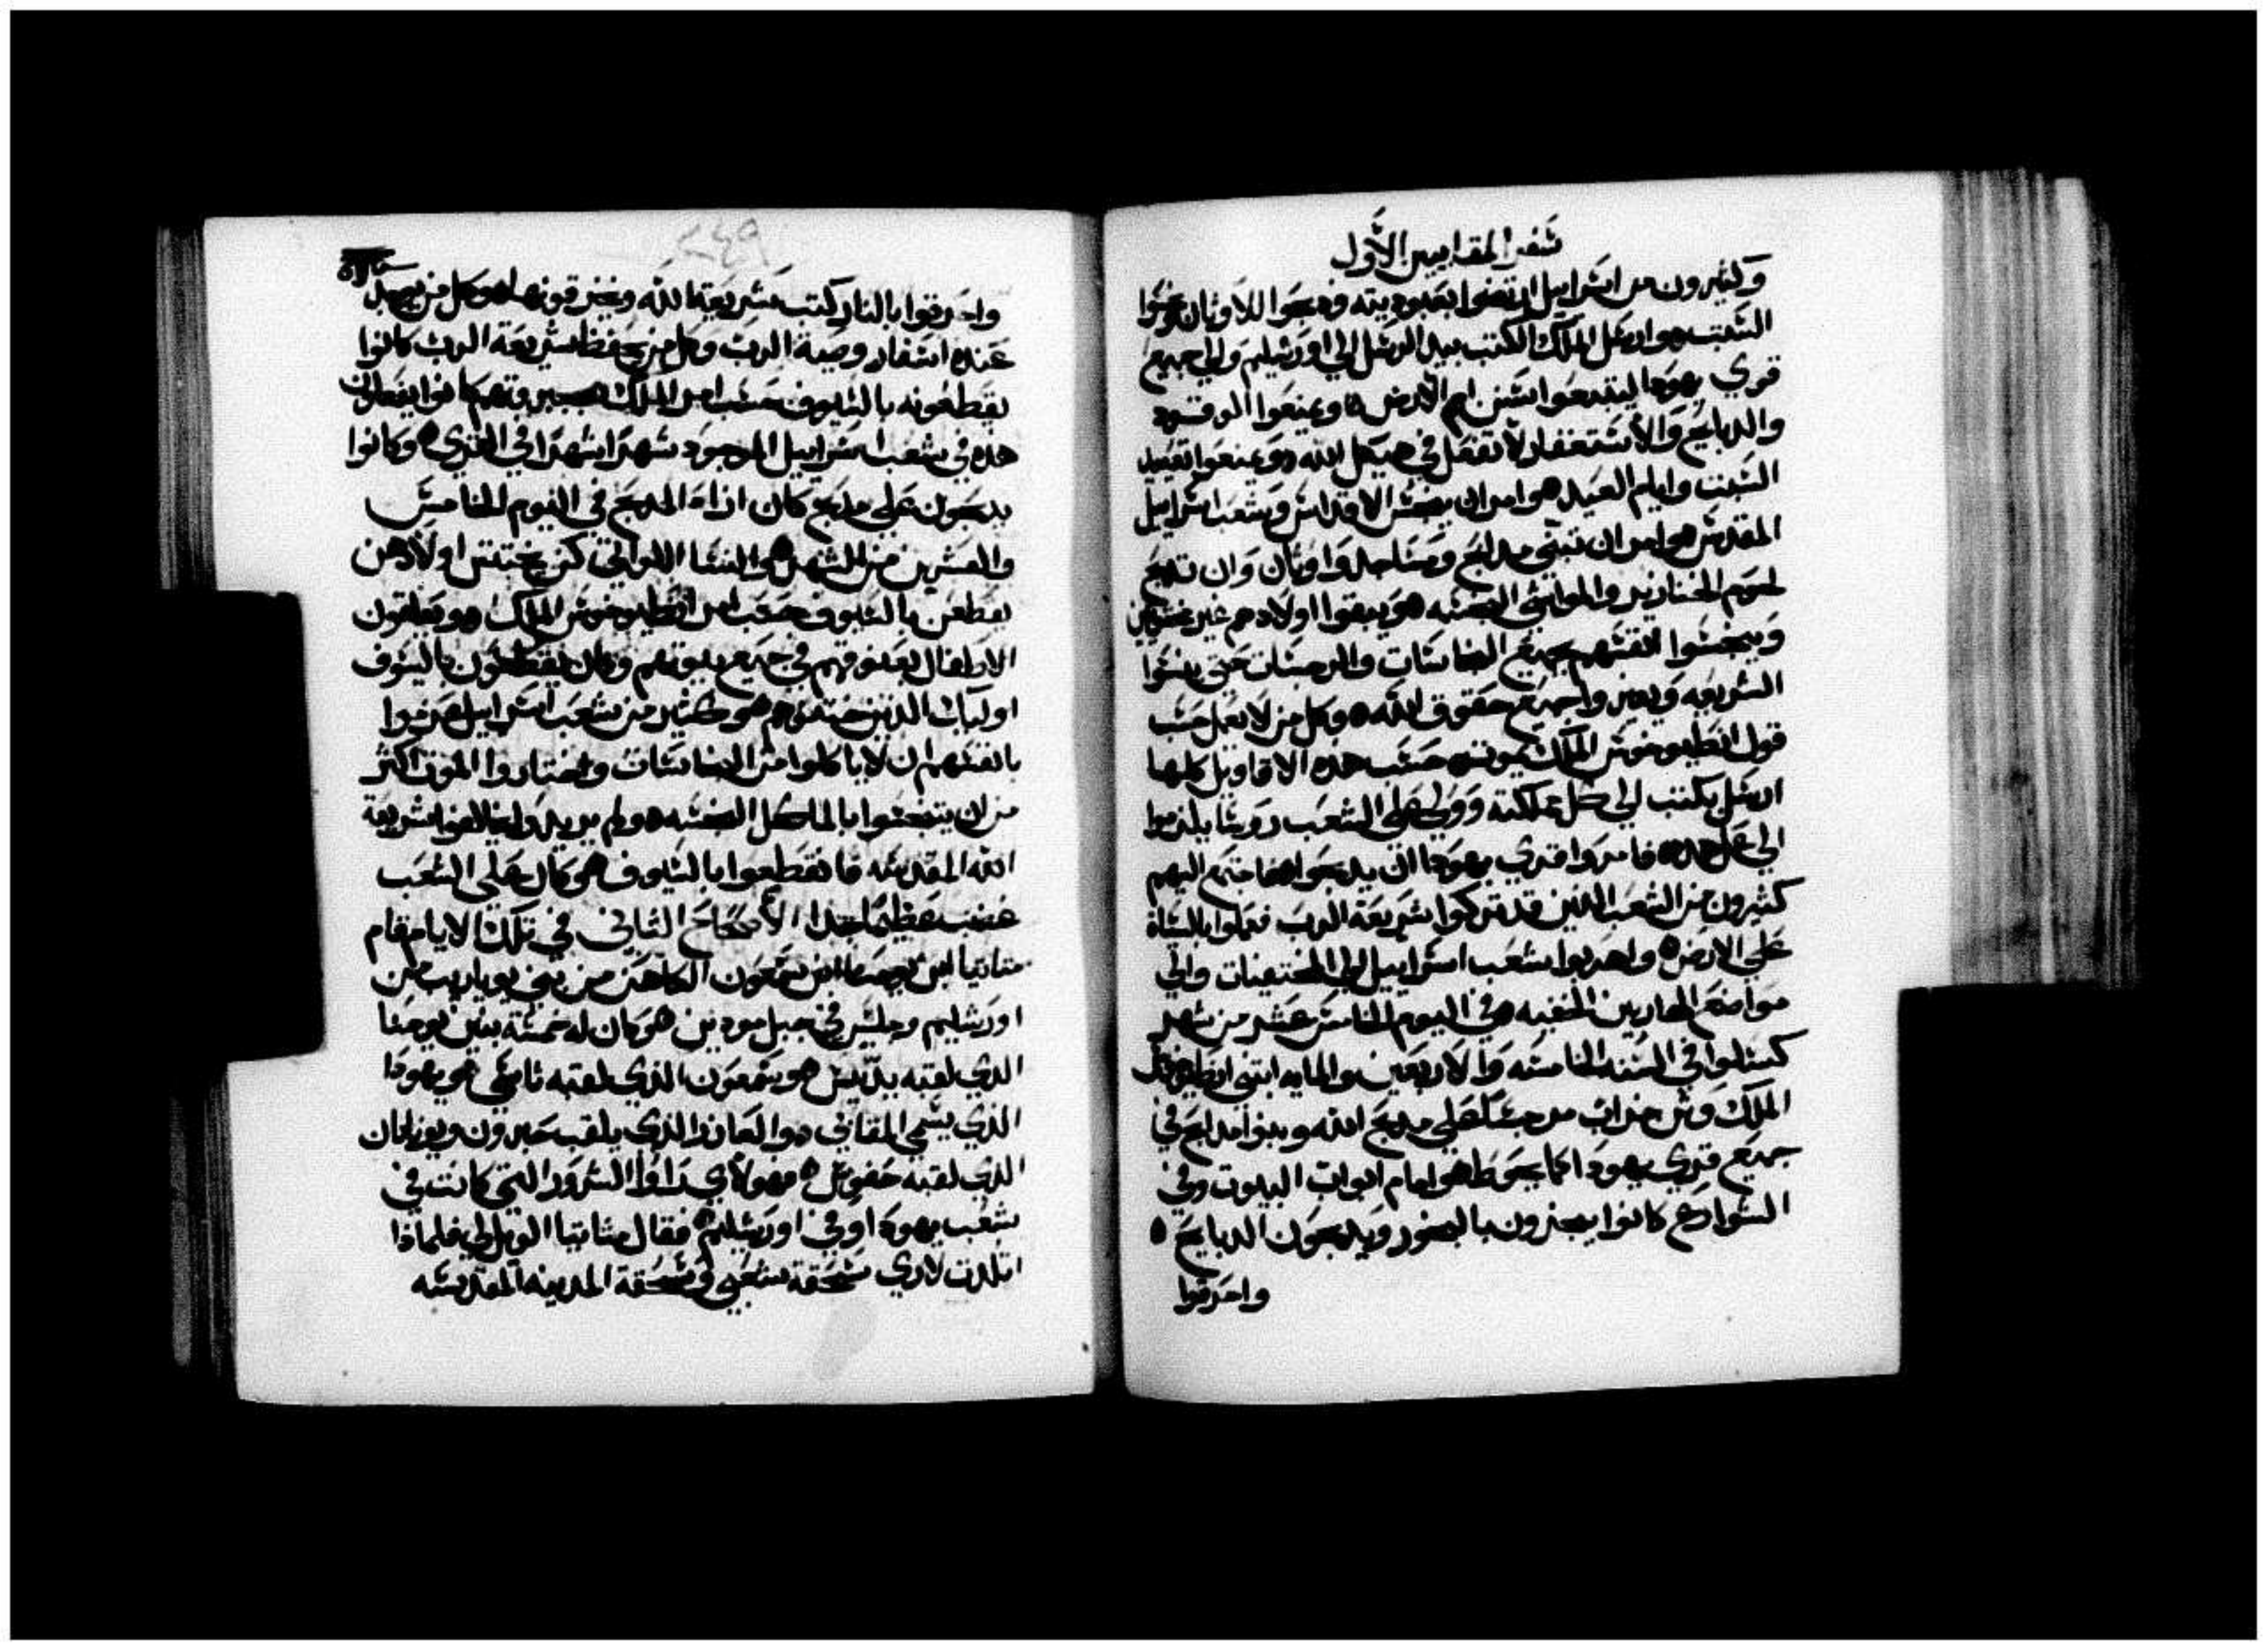 سفر المقابيين الاول
وكثيرون من اسرايل ارتضوا بعبوديته وذبحوا للاوثان ونجسوا
السبت ه وارسل الملك الكتب بيد الرسل الي اورشليم والي جميع
قري يهودا ليتبعوا سنن امم الارض ه ويمنعوا الوقود
والدبايح والاستغفار لا تفعل في هيكل الله ه ويمنعوا تعييد
السبت وايام العيد ه وامر ان ينجس الاقداس وشعب اسراييل
المقدس ه وامر ان تبني مدابح ومساجد واوثان وان تدبح
لحوم الخنازير والمواشي النجسه ه ويبقوا اولادهم غير مختونين
وينجسوا انفسهم بجميع النجاسات والرجسات حتي ينسوا
الشريعه ويغيروا جميع حقوق الله ه وكل من لا يعمل حسب
قول انطيوخوس الملك يموت ه حسب هذه الاقاويل كلها
ارسل يكتب الي كل مملكته وولي علي الشعب روسا يلزموا
الي عمل هده ه فامروا قري يهودا ان يدبحوا ه فاجتمع اليهم
كثيرون من الشعب الذين قد تركوا شريعة الرب فعملوا بالساة
علي الارض ه واهربوا شعب اسراييل الي المختفيات والي
مواضع الهاربين الخفيه ه في اليوم الخامس عشر من شهر
كسلوا في السنه الخامسه والاربعين والمايه ابتني انطيوخوس
الملك وثن خراب مرجسا علي مدبح الله وبنوا مدابح في
جميع قري يهودا كما يحوط ه وامام ابواب البيوت وفي
الشوارع كانوا يبخرون بالبخور ويدبحون الدبايح ه
واحرقوا
٢٤٩
واحرقوا بالنار كتب شريعة الله ومزقوها ه وكل من يوجد
عنده اسفار وصية الرب وكل من يحفظ شريعة الرب كانوا
يقطعونه بالسيوف حسب امر الملك ه بجبروتهم كانوا يفعلون
هذه في شعب اسراييل الموجود شهرا شهرا في القري ه وكانوا
يدبحون علي مدبح كان ازاء المدبح في اليوم الخامس
والعشرين من الشهر ه والنسا اللواتي كن يختنن اولادهن
يقطعن بالسيوف حسب امر انطيوخوس الملك ه ويعلقون
الاطفال بعنوقهم في جميع بيوتهم وكان يقطعون بالسيوف
اوليك الذين ختنوهم ه وكثير من شعب اسراييل عزموا
بانفسهم ان لا ياكلوا من النجاسات واختاروا الموت اكثر
من ان يتنجسوا بالماكل النجسه ه ولم يريدوا يخالفوا شريعة
الله المقدسه فانقطعوا بالسيوف ه وكان علي الشعب
غضب عظيما جدا الاصحاح الثاني في تلك الايام قام
متاتيا ابن يوحنا ابن سمعون الكاهن من بني يوياريب من
اورشليم وجلس في جبل مودين ه وكان له خمسة بنين يوحنا
الذي لقبه يدّيس ه وسمعون الذي لقبه ثاسي ه ويهودا
الذي يسمي المقابي ه والعازر الذي يلقب حبرون ويوناثان
الذي لقبه حفوس ه فهولاي راوا الشرور التي كانت في
شعب يهودا وفي اورشليم ه فقال متاتيا الويل لي فلماذا
اتلدت لاري سحقة شعبي وسحقة المدينه المقدسه